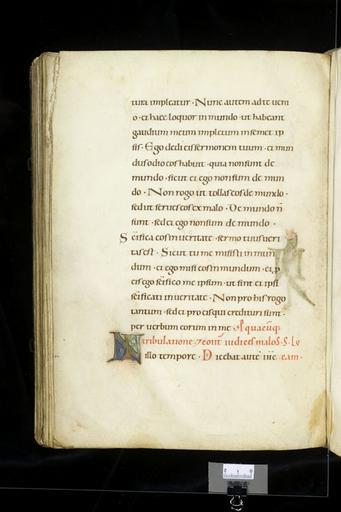 tura impleatur · Nunc autem ad te veni
o · et haec loquor in mundo · ut habeant
gaudium meum impletum in semet ip
sis · Ego dedi eis sermonem tuum · et mun
dus odio eos habuit · quia non sunt de
mundo · sicut et ego non sum de mun
do · Non rogo ut tollas eos de mundo ·
sed ut serves eos ex malo · De mundo n̄
sunt · sed et ego non sum de mundo ·
Sc̄ifica eos in veritate · sermo tuus veri
tas est · Sicut tu me misisti in mun
dum · et ego misi eos in mundum · et p
eis ego sc̄ifico me ipsum · ut sint et ipsi
sc̄ificati in veritate · Non pro his rogo
tantum · sed et pro eis qui credituri sunt ·
per verbum eorum in me
tribulatione malos · S · Lu
illo tempore · Dicebat